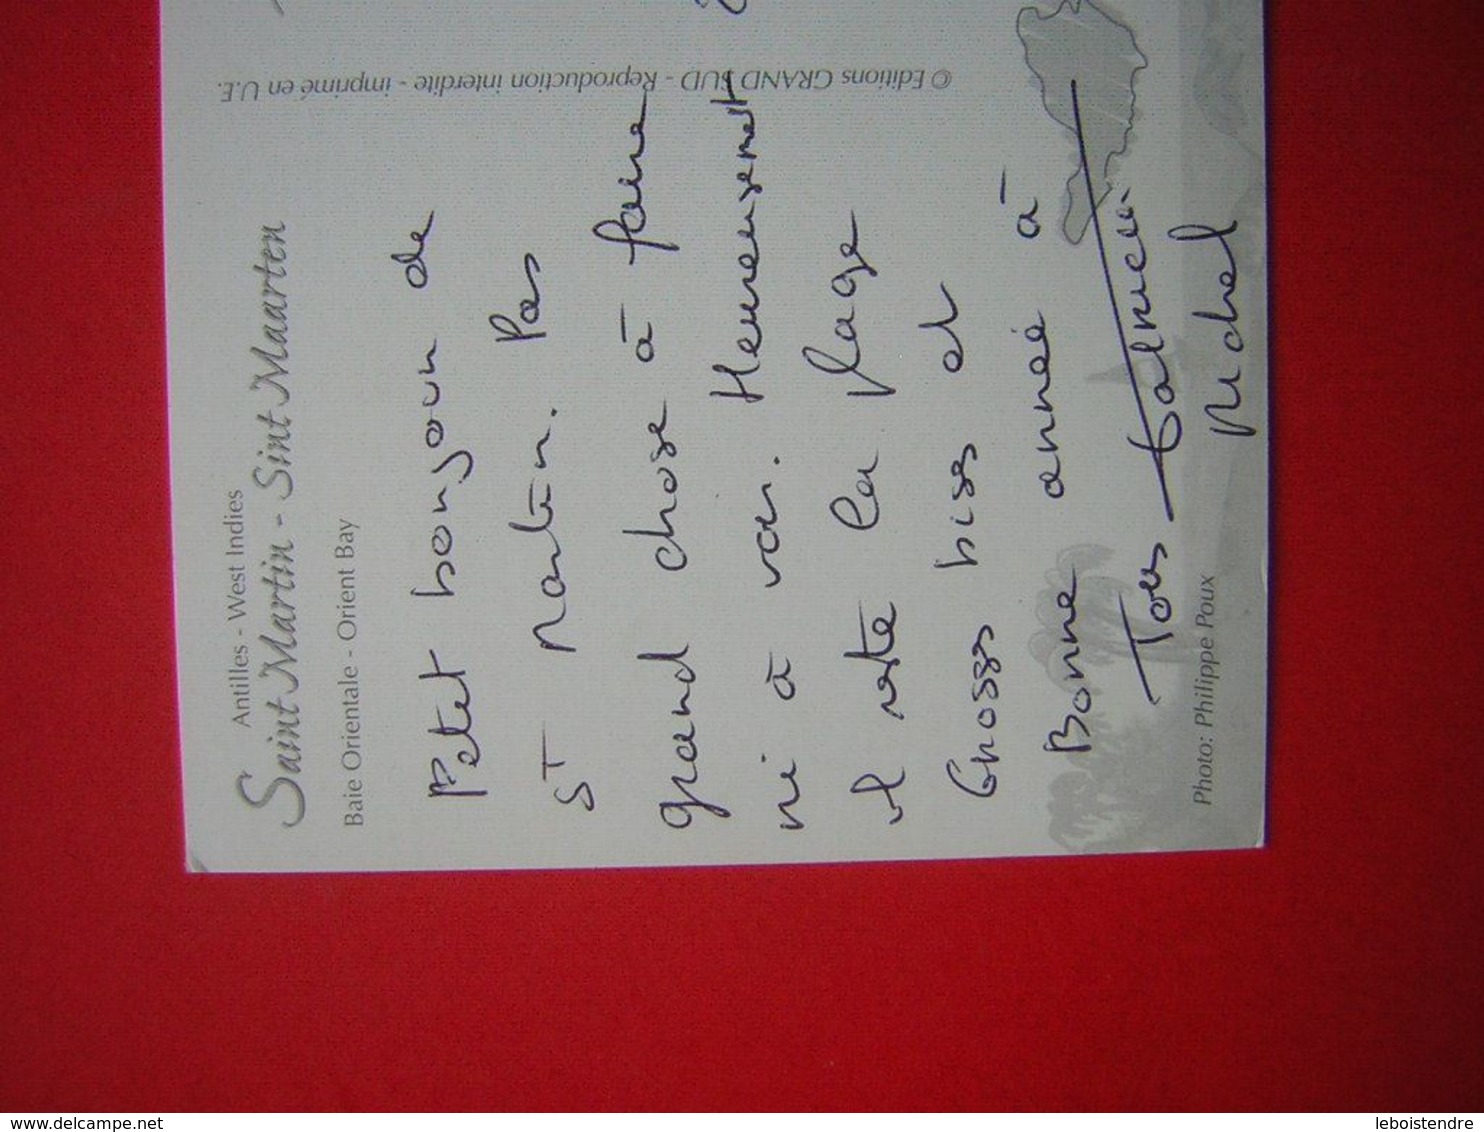 Antilles - West Indies
Saint Martin - Sint Maarten
Baie Orientale - Orient Bay
Petit bonjour de
St Martin. Pas
grand chose à faire
ni à voir. Heureusement
il reste la plage
Grosses bises et
Bonne année à
Tous
Michel
Photo: Philippe Poux
© Editions GRAND SUD - Reproduction interdite - imprimé en U.E.
www.delcampe.net
leboistendre